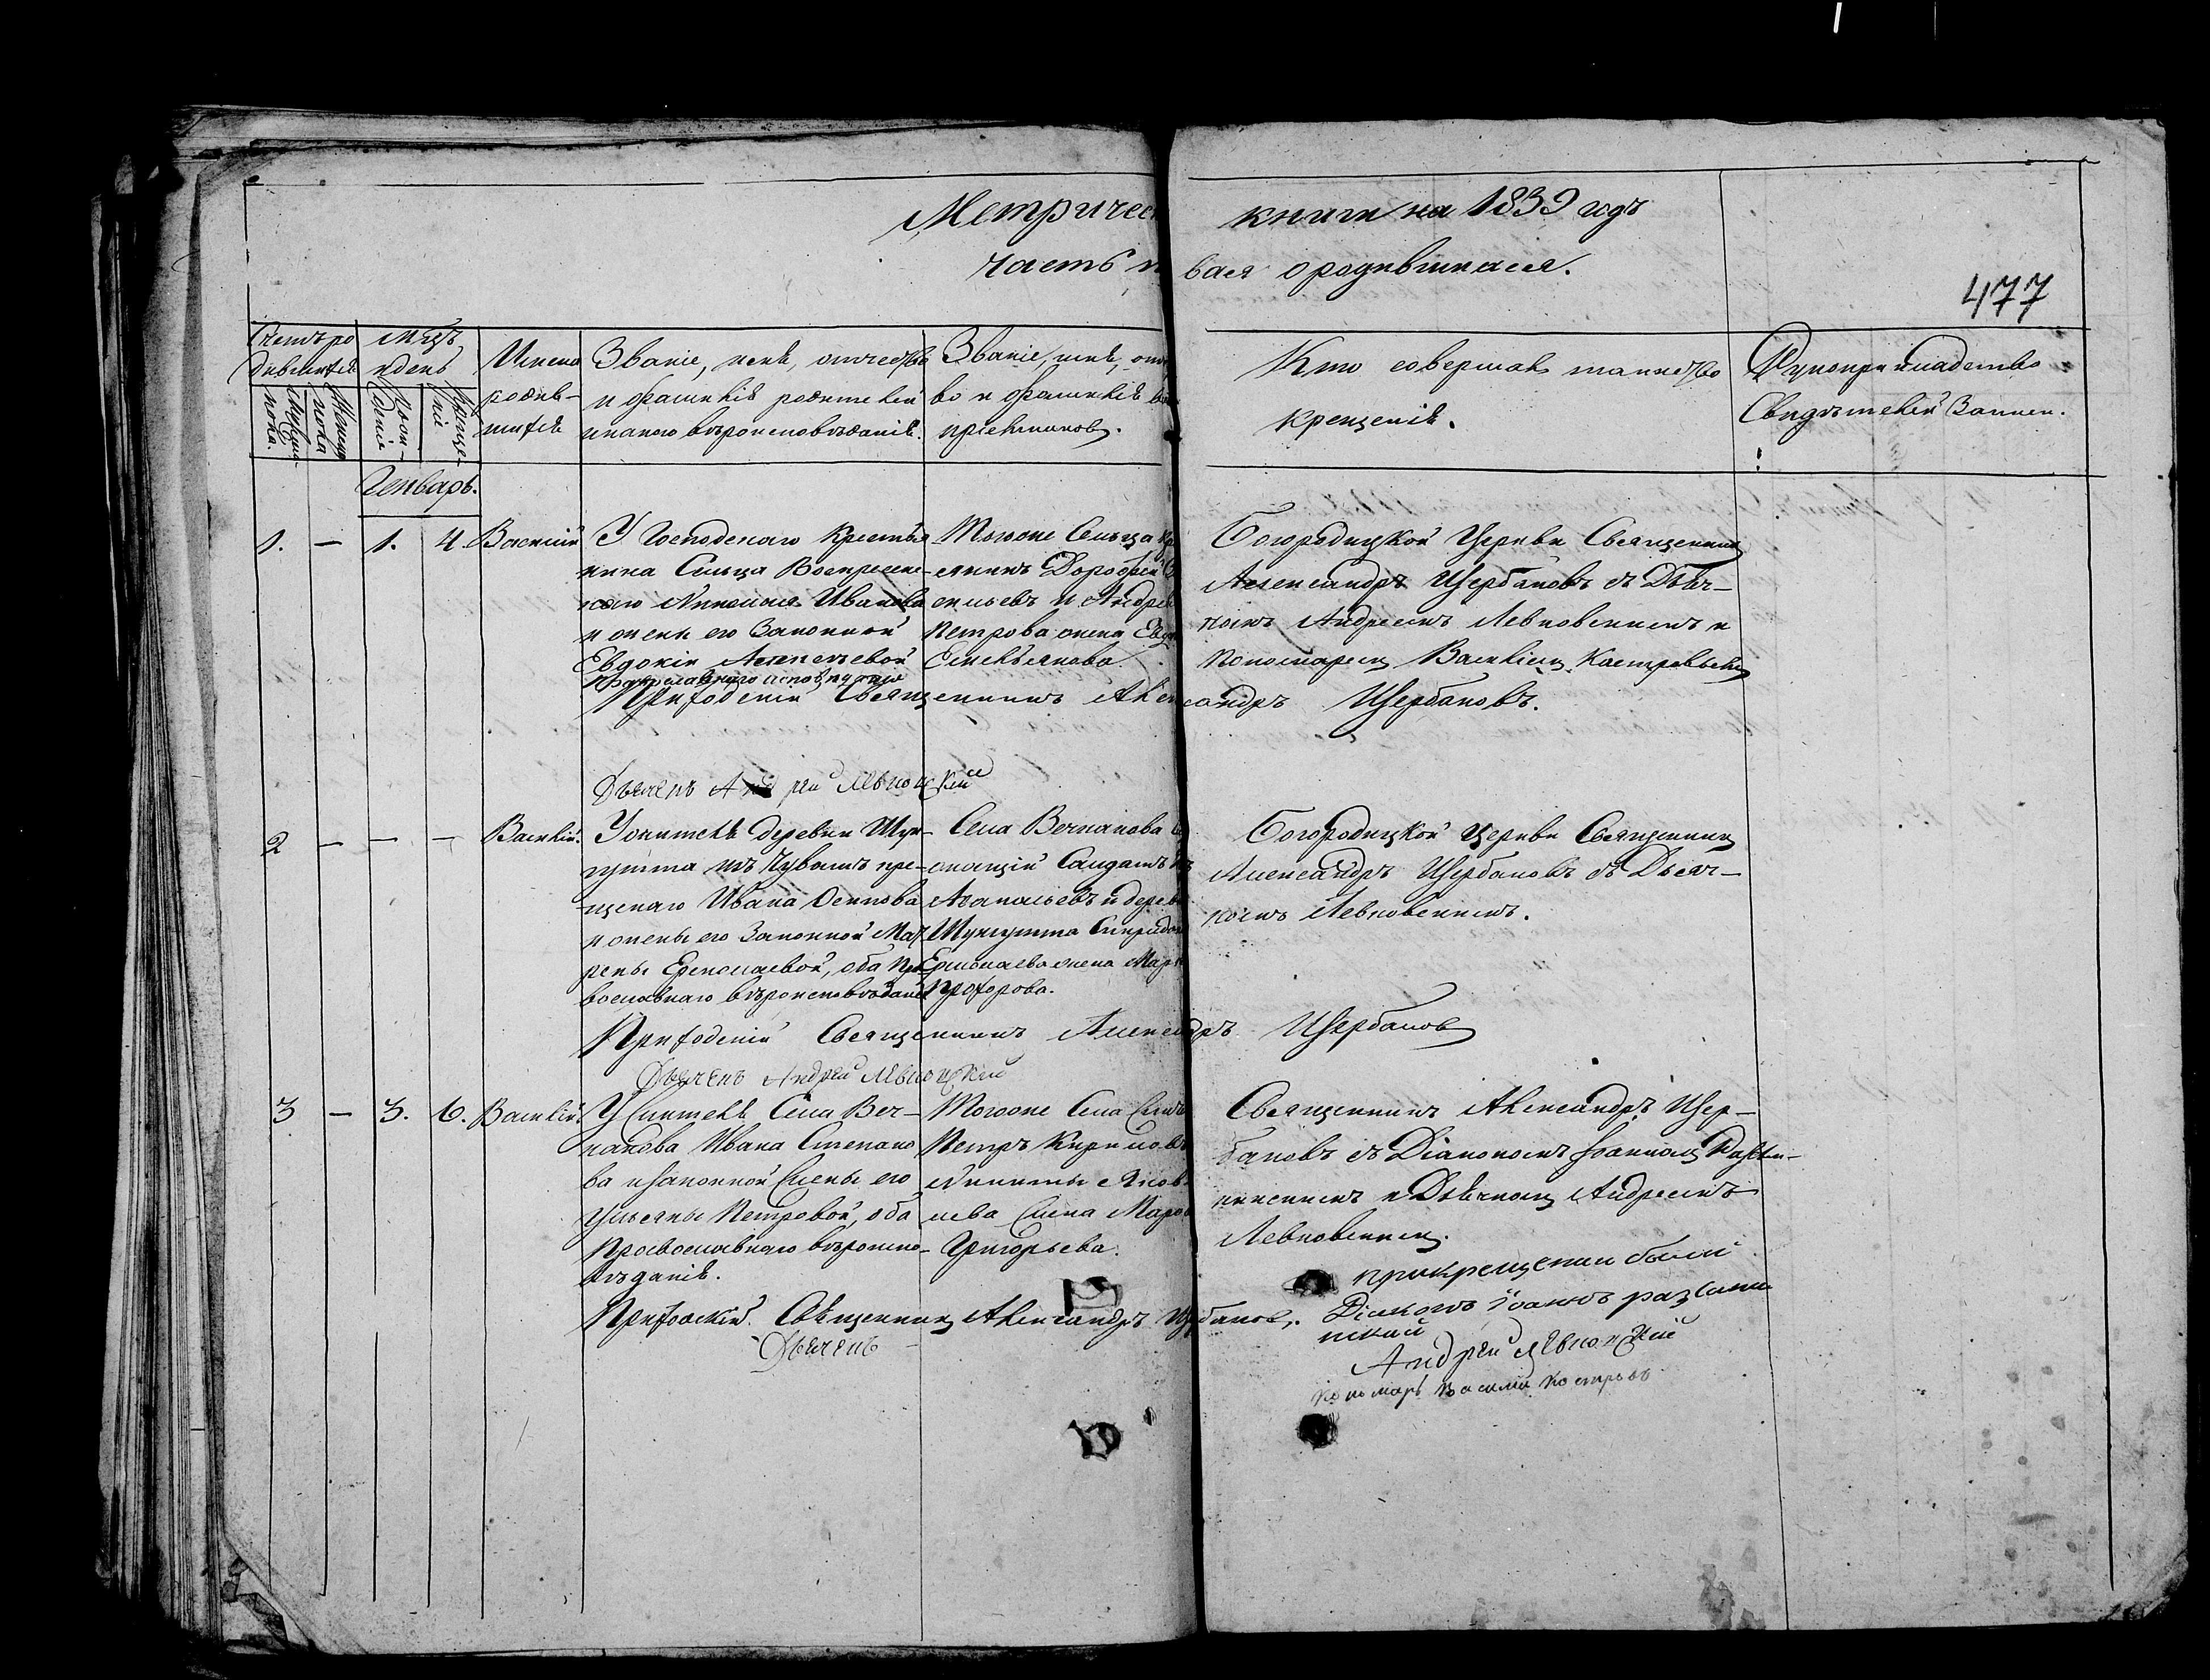 Метричес книги на 1839 годъ
часть п вая о родившихся.
477
Счетъ ро
дившихся
Мцъ
и день
Имена
родив-
шихся
Званіе, имя, отчество
и фамилія родителей
и какого вѣроисповѣданія.
Званіе, имя, отч
во и фамилія во
пріемниковъ.
Кто совершалъ таинство
крещенія.
Рукоприкладство
Свидѣтелей записи.
Мужеска
пола.
Женска
пола
Рож-
деніе
Креще-
ніе
Генварь.
1. — 1. 4. Василій
У Господскаго Крестья
нина Сельца Воскресенс-
каго Николая Иванова
и жены его Законной
Евдокіи Алексѣевой
православнаго исповѣданія
Тогоже Сельца кре
янинъ Дорофей
ельевъ и Андрея
Петрова жена Евд
Емельянова.
Богородицкой Церкви Священникъ
Александръ Щербаковъ съ Дьяч-
комъ Андреемъ Левковскимъ и
Пономаремъ Васильемъ Кастровымъ
Приходскій Священникъ Александръ Щербаковъ.
Дьячекъ Андрей Левковскій
2 — — — Василій.
У жителя деревни Шун-
гутта изъ Чувашъ кре-
щенаго Ивана Осипова
и жены его Законной Мат
рены Ермолаевой, оба Пра
вославнаго вѣроисповѣданія
Села Вечканова
Салдатъ
Афанасьевъ и дерев
Шунгутта Спиридона
Ермолаева жена Мар
Прохорова.
Богородицкой Церкви Священникъ
Александръ Щербаковъ съ Дьяч-
комъ Левковскимъ.
Приходскій Священникъ Александръ Щербаковъ
Дьячекъ Андрей Левковскій
3 — 3. 6. Василій.
У жителя Села Веч-
канова Ивана Степано
ва и законной жены его
Ульяны Петровой, оба
Православнаго вѣроиспо-
вѣданія.
Тогоже Села
Петръ Кириловъ
Никиты Яков
лева жена Мар
Григорьева.
Священникъ Александръ Щер-
баковъ съ Діакономъ Іоанномъ
и Дьячкомъ Андреемъ
Левковскимъ.
Приходскій Священникъ Александръ Щербаковъ.
при крещении были
Діаконъ Іоаннъ
Дьячекъ
Андрей Левковскій
пономарь Василій Костровъ